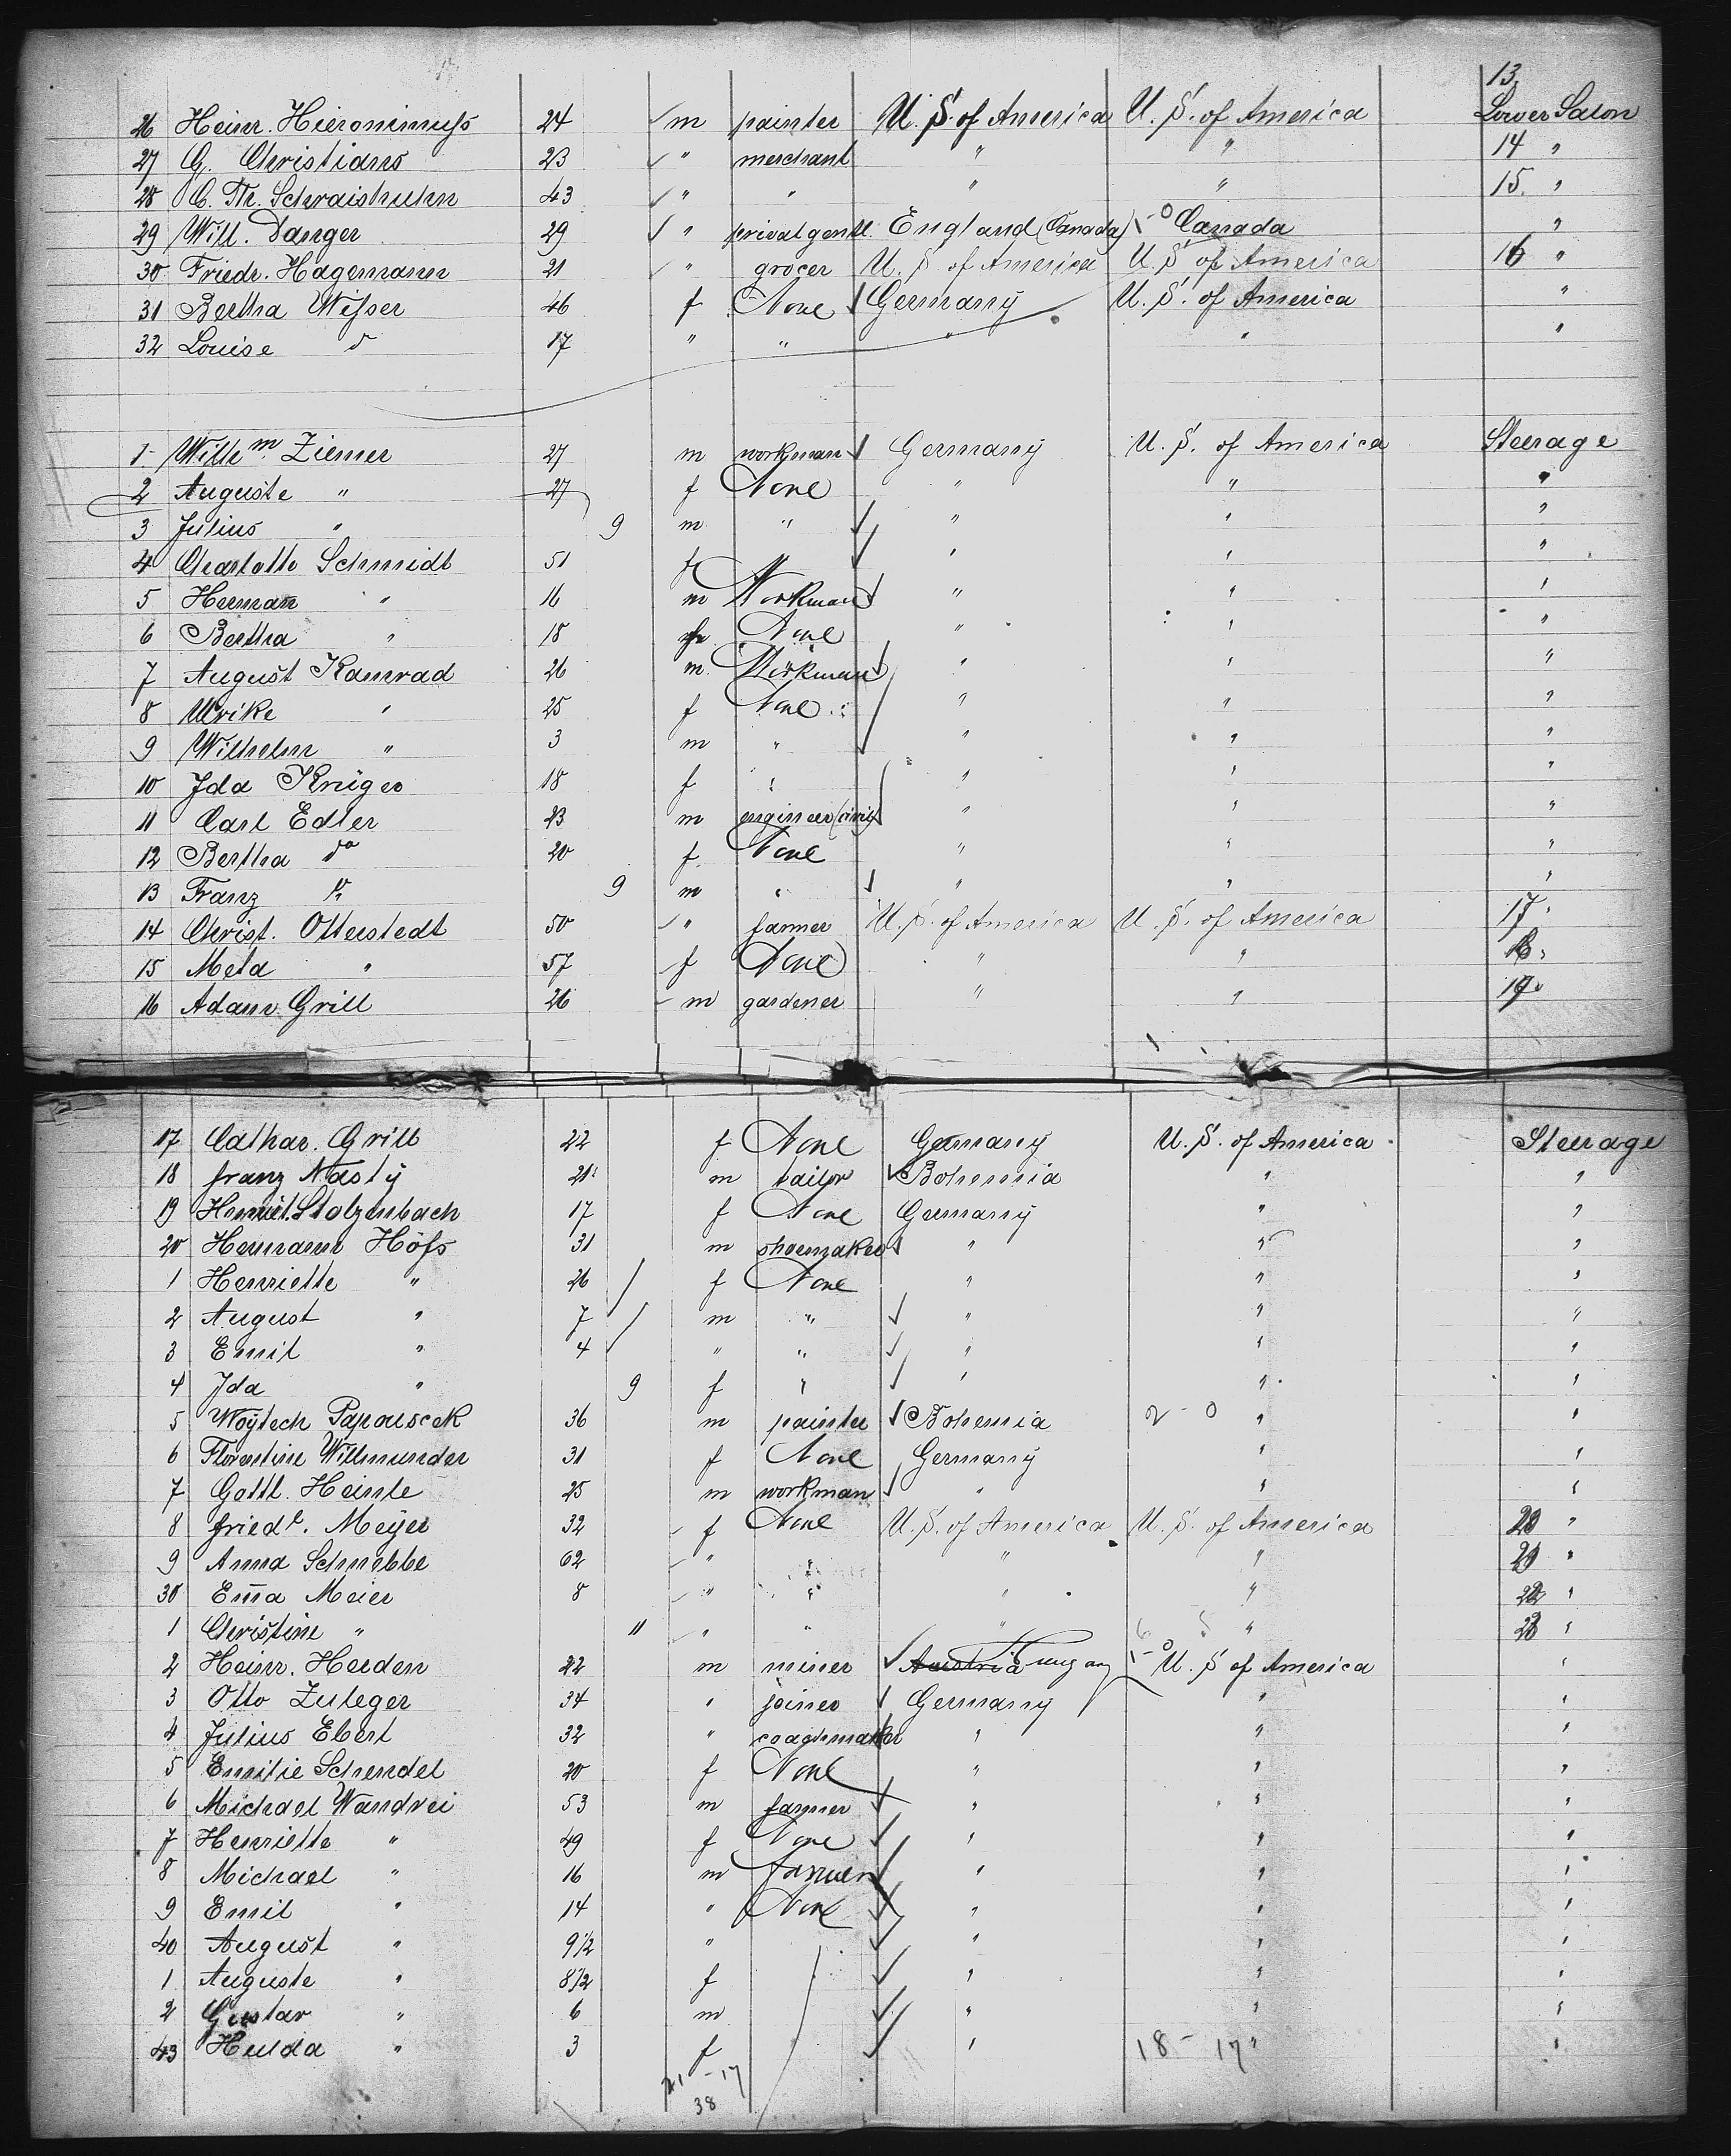 13.
26 Heinr. Hieronimuss 24 m painter U. S. of America U. S. of America Lower Salon
27 G. Christians 23 " merchant " " 14 "
28 C. Th. Schraishuhn 43 " " " " 15. "
29 Will. Danger 29 " privatgentl. England (Canada) 1-0 Canada "
30 Friedr. Hagemann 21 " grocer U. S. of America U. S. of America 16 "
31 Bertha Wisser 46 f None Germany U. S. of America "
32 Louise do 17 " " " " "
1. Wilhm. Ziemer 27 m workman Germany U. S. of America Steerage
2 Auguste " 27 f None " " "
3 Julius " 9 m " " " "
4 Charlotte Schmidt 51 f " " "
5 Herman " 16 m Workman " " "
6 Bertha " 18 f None " " "
7 August Kamrad 26 m. Workman " " "
8 Ulrike " 25 f None " " "
9 Wilhelm " 3 m " " " "
10 Ida Krüger 18 f " " " "
11 Carl Edler 23 m engineer (civil) " " "
12 Bertha do 20 f. None " " "
13 Franz do 9 m " " " "
14 Christ. Otterstedt 50 " farmer U. S. of America U. S. of America 17 "
15 Meta " 57 f None " " 18 "
16 Adam Grill 26 m gardener " " 19 "
17 Cathar. Grill 22 f None Germany U. S. of America Steerage
18 Franz Nasty 21 m tailor Bohemia " "
19 Henriet. Stolzenbach 17 f None Germany " "
20 Hermann Höfs 31 m shoemaker " " "
1 Henriette " 26 f None " " "
2 August " 7 m " " " "
3 Emil " 4 " " " " "
4 Ida " 9 f " " " "
5 Woytech Papouscek 36 m painter Bohemia 2-0 " "
6 Florentine Willmunder 31 f None Germany " "
7 Gottl. Heinle 25 m workman " " "
8 Friedr. Meyer 32 f None U. S. of America U. S. of America 20 "
9 Anna Schnebbe 62 " " " " 21 "
30 Em̄a Meier 8 " " " " 22 "
1 Christine " 11 " " " " 23 "
2 Heinr. Heiden 22 m miner Austria Hungary 1-0 U. S. of America "
3 Otto Zuleger 34 " joiner Germany " "
4 Julius Ebert 32 " coachmaker " " "
5 Emilie Schendel 20 f None " " "
6 Michael Wandrei 53 m farmer " " "
7 Henriette " 49 f None " " "
8 Michael " 16 m farmer " " "
9 Emil " 14 " None " " "
40 August " 9 1/2 " " " "
1 Auguste " 8 1/2 f " " "
2 Gustav " 6 m " " "
43 Hulda " 3 f " 18 - 17 " "
21 - 17
38